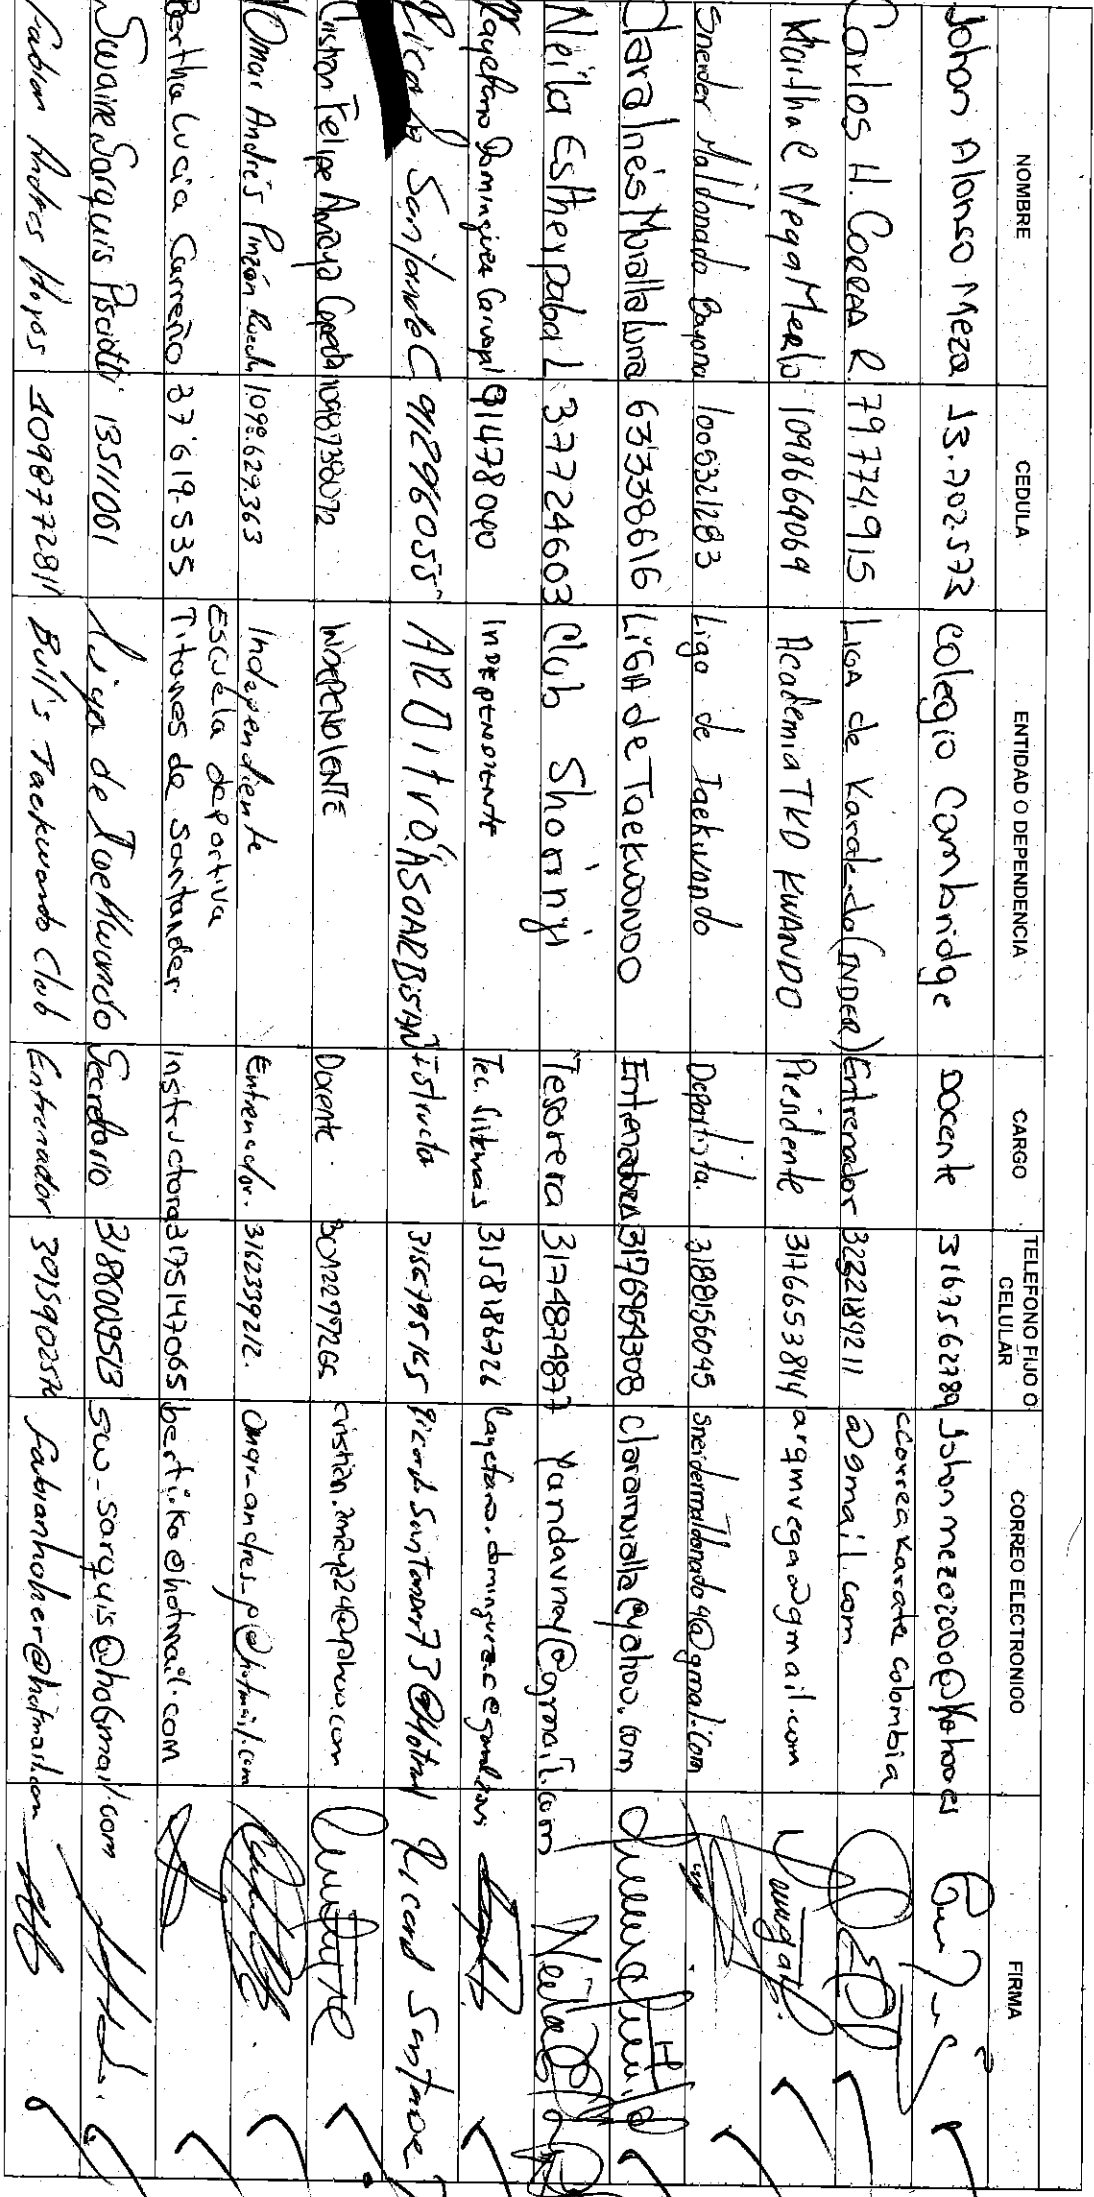 NOMBRE CEDULA ENTIDAD O DEPENDENCIA CARGO TELEFONO FIJO O CELULAR CORREO ELECTRONICO FIRMA
Johan Alonso Meza 13.702.573 Colegio Cambridge Docente 3167562789
Carlos H. Correa R. 79.774.915 Liga de Karate-do (INDER) Entrenador 3232189211 ccorreakaratecolombia@gmail.com
Martha C Vega Merlo 1098669069 Academia TKD KWANDO Presidente 3176653844 argmvega@gmail.com
Sneider Maldonado Bayona 1005321283 Liga de Taekwondo Deportista. 3188156045 sneidermaldonado4@gmail.com
Clara Inés Mualla Luna 63'338616 LIGA de Taekwondo Entrenadora 3176954308 claramualla@yahoo.com
Neila Esther pabaL 37724603 Club Shorinji Tesorera 3174874877 yandavney@gmail.com
Cayetano Dominguez Carvajal 91478040 INDEPENDIENTE Tec. Sistemas 3158186726
Ricardo Santander C 91296055 ARbitro ASOARBISAN 3156795165 Ricard Santander
Cristian Felipe Amaya Cepeda 1098738072 INDEPENDIENTE Docente. 3012297266 cristian.amaya24@yahoo.com
Omar Andrés Pinzón Rueda 1098.629.363 Independiente Entrenador. 3162339212. omar_andres_p@hotmail.com
Bertha Lucia Carreño 37'619.535 Escuela deportiva Titanes de Santander. instructora 3175147065 bertiko@hotmail.com
Swaine Sarquis Pisciotti 13511061 Liga de Taekwondo Secretario 3186009513 sw_sarquis@hotmail.com
Fabian Andres Hoyos 1098772811 Bull's Taekwondo Club Entrenador 3015902576 fabianhoher@hotmail.com